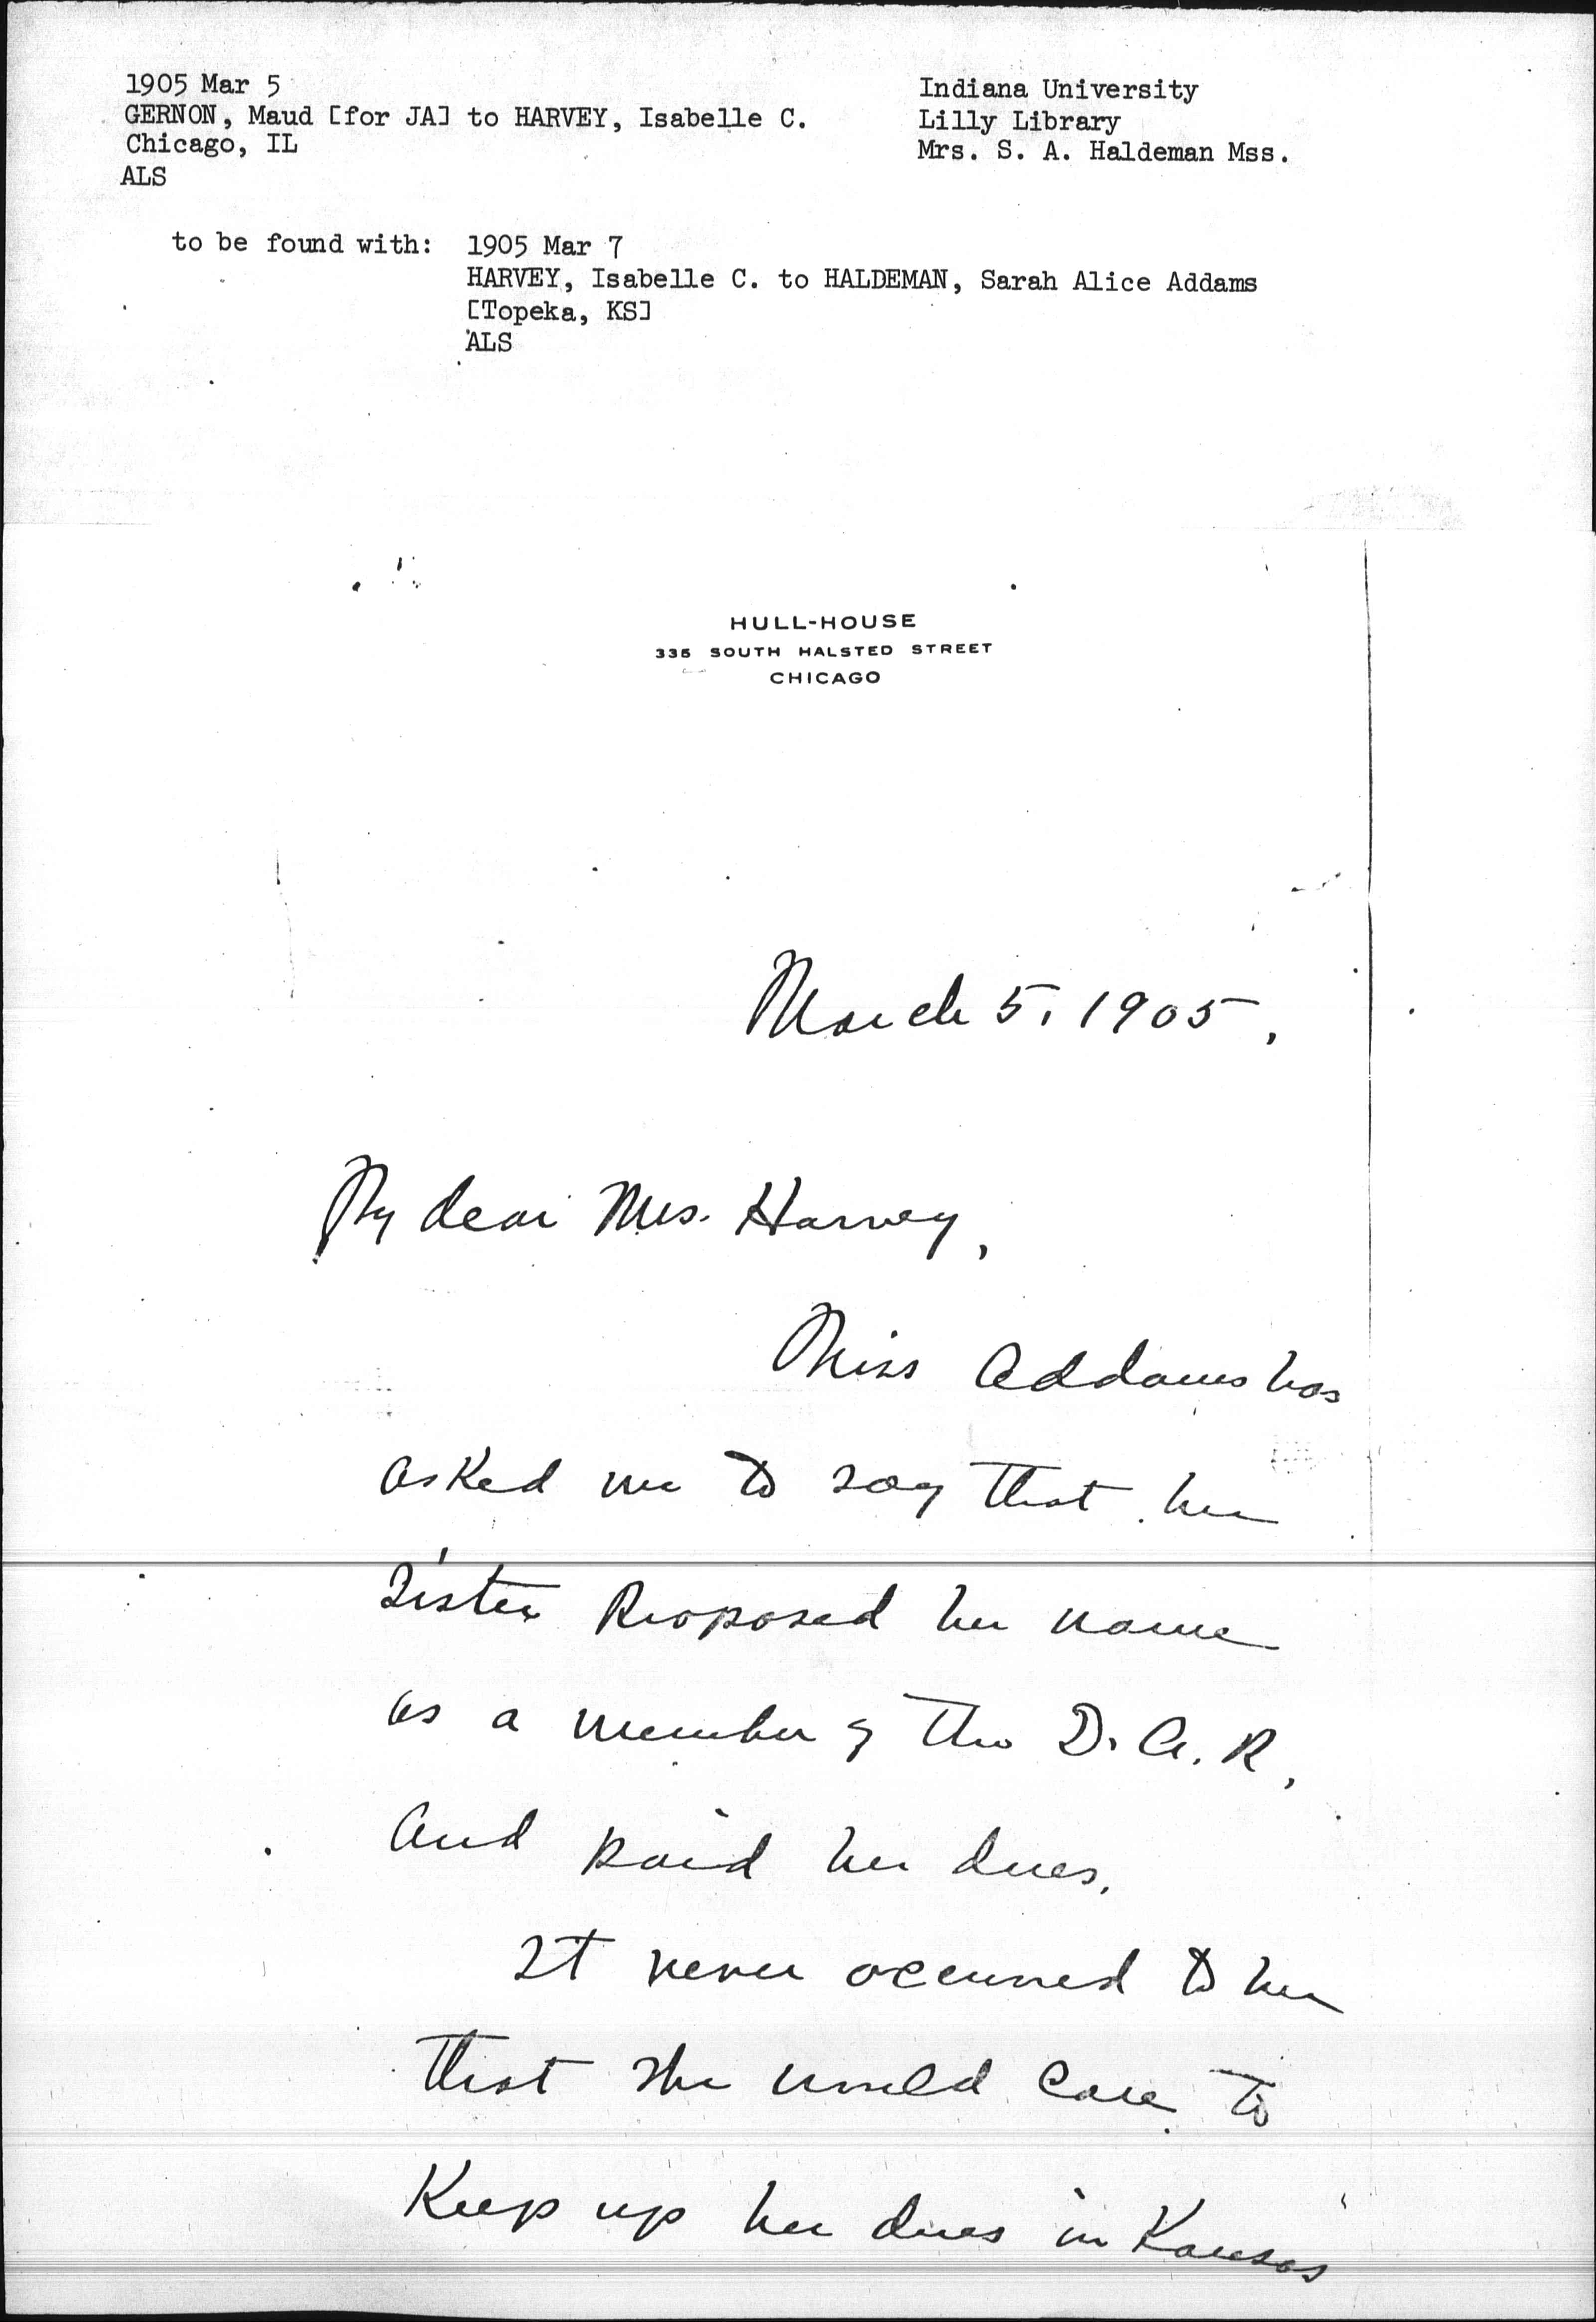 1905 Mar 5
GERNON, Maud [for JA] to HARVEY, Isabelle C.
Chicago, IL
ALS
Indiana University
Lilly Library
Mrs. S. A. Haldeman Mss.
to be found with: 1905 Mar 7
HARVEY, Isabelle C. to HALDEMAN, Sarah Alice Addams
[Topeka, KS]
ALS
HULL-HOUSE
335 SOUTH HALSTED STREET
CHICAGO
March 5, 1905,
My dear Mrs. Harvey,
Miss Addams has
asked me to say that her
sister proposed her name
as a member of the D. A. R,
and paid her dues.
It never occurred to her
that she would care to
keep up her dues in Kansas